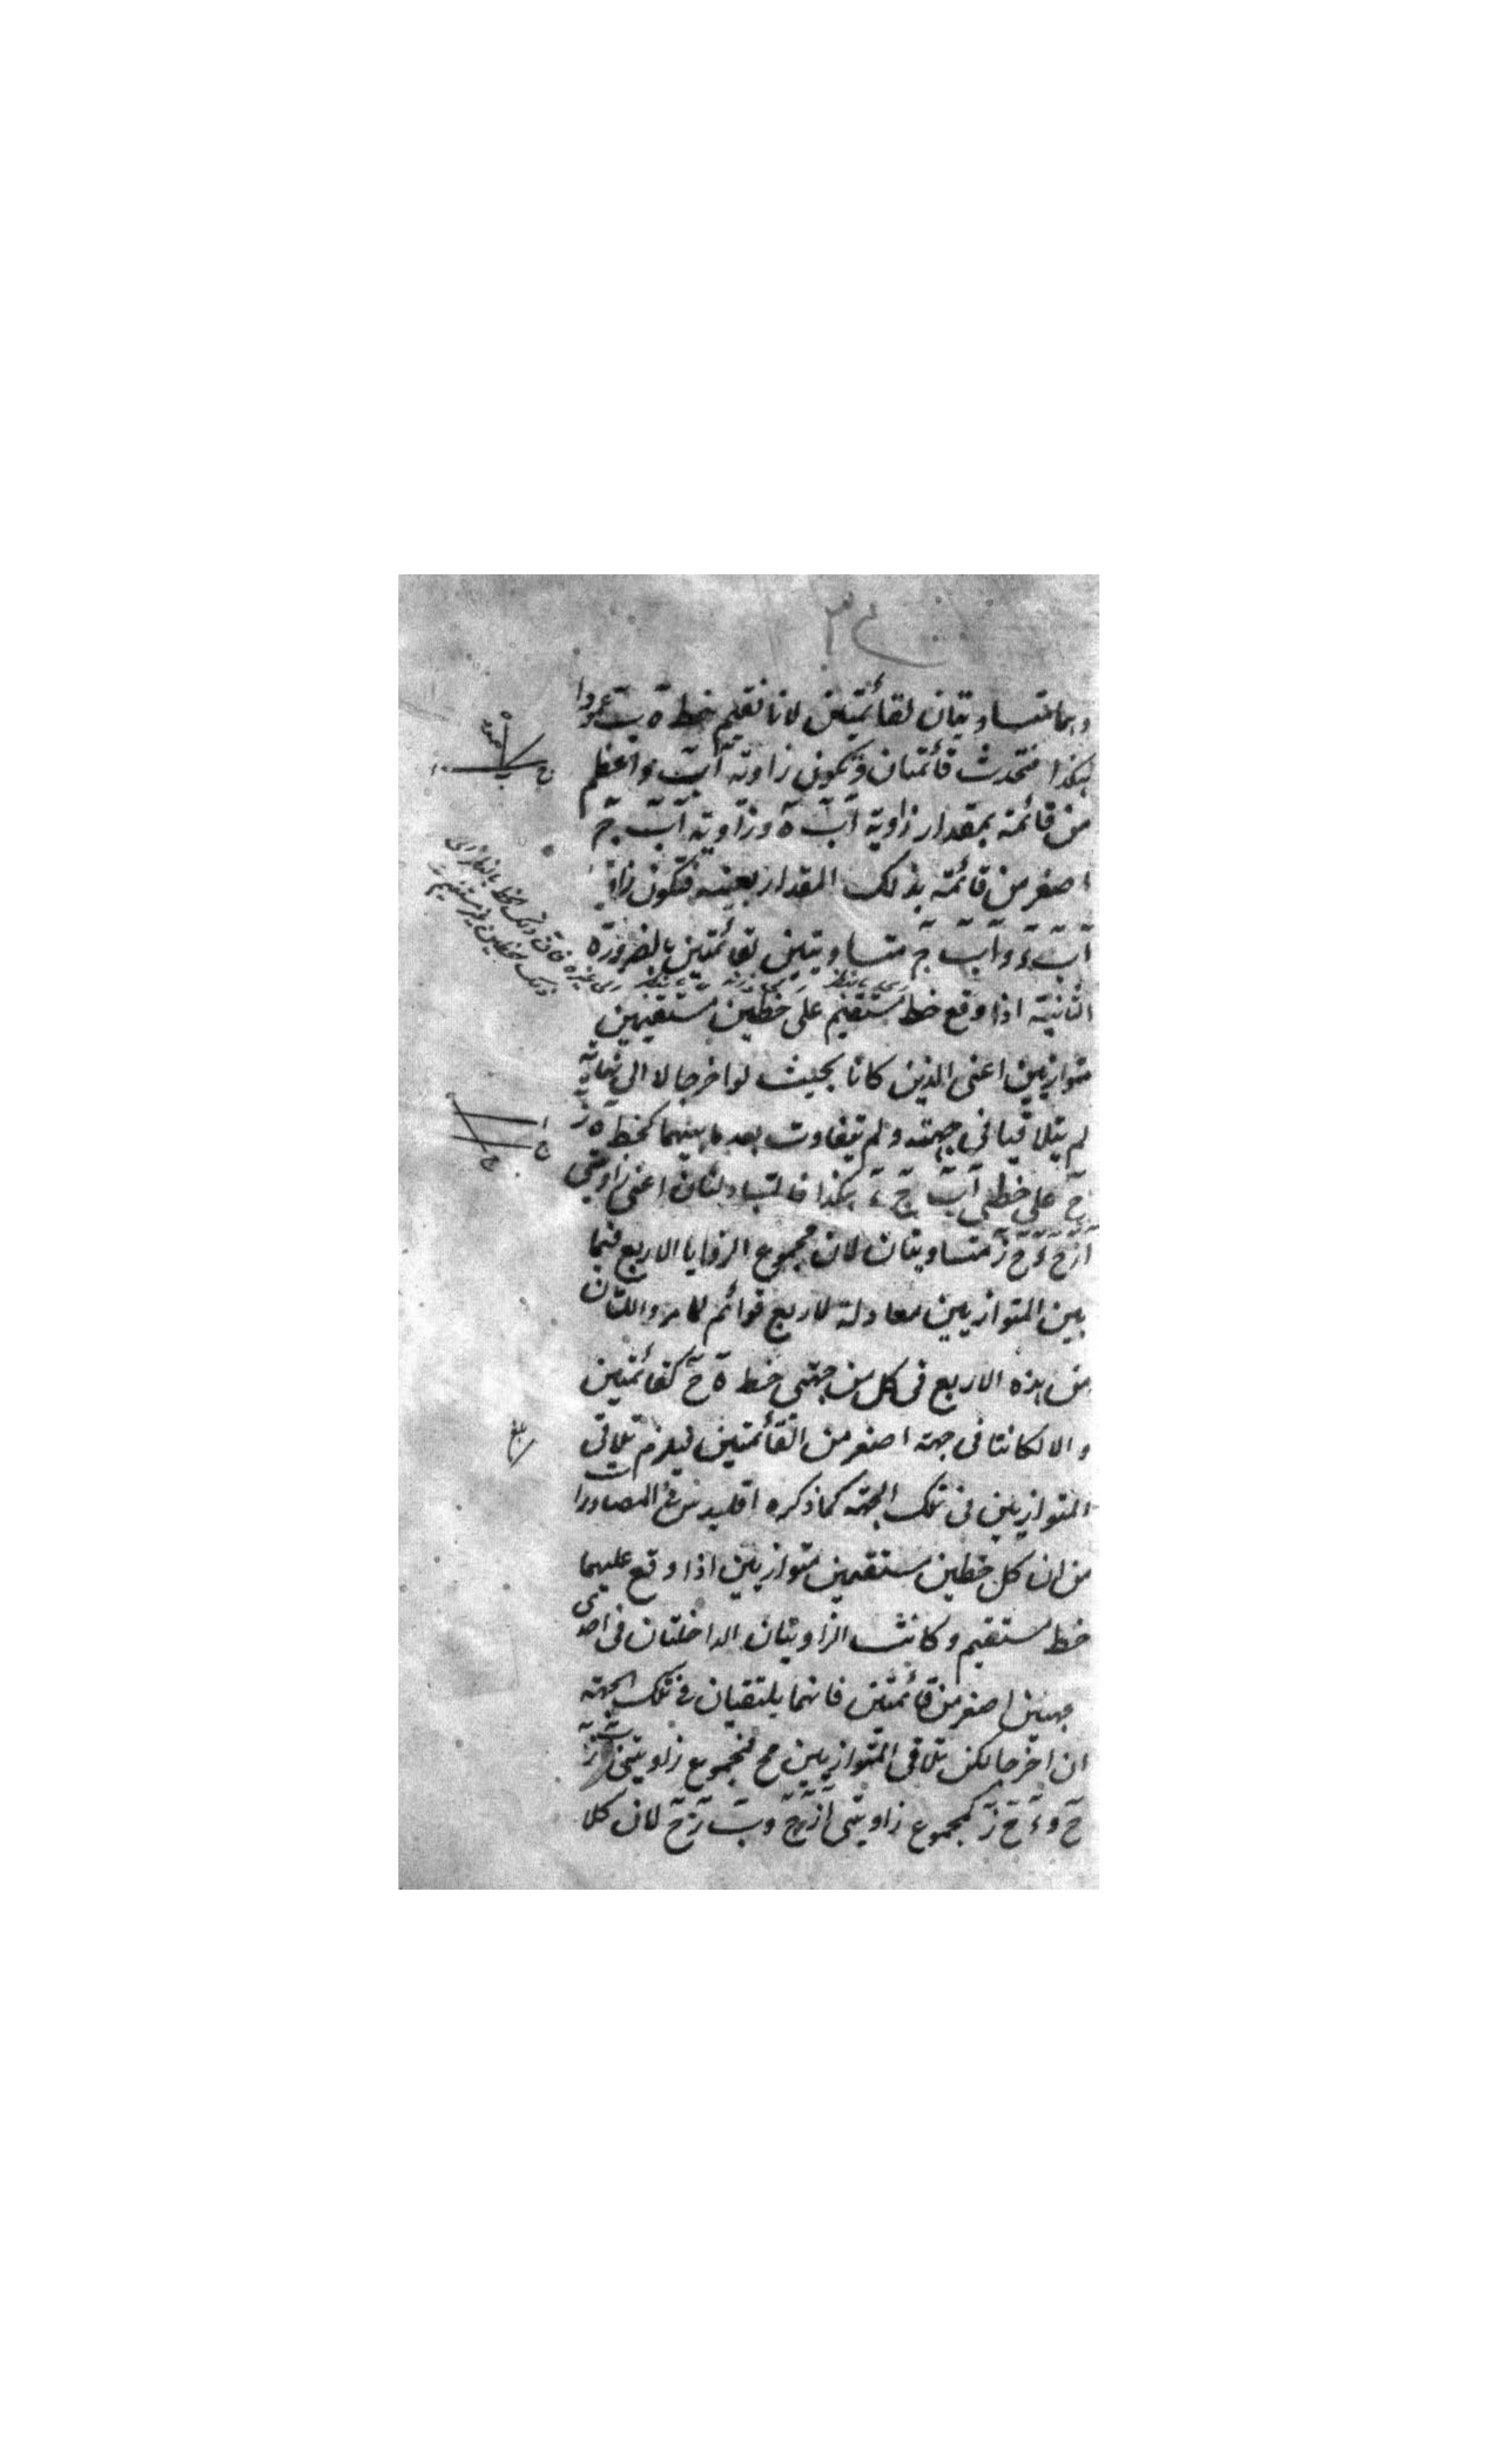 وهما متساويتان لقائمتين لانا نقيم خط ه ب عمودا
هكذا فتحدث قائمتان وتكون زاوية اب ء اعظم
من قائمة بمقدار زاوية اب ه وزاوية اب ج
اصغر من قائمة بذلك المقدار بعينه فتكون زاو
اب ء و اب ج متساويتين لقائمتين بالضرورة
الثانية اذا وقع خط مستقيم على خطين مستقيمين
متوازيين اعنى الذين كانا بحيث لو اخرجا لا الى نهاية
لم يتلاقيا فى جهة ولم يتفاوت بعد ما بينهما كخط ه ز
ح على خطى اب ج ء هكذا فالمتبادلتان اعنى زاويتى
ا ز ح ء ح ز متساويتان لان مجموع الزوايا الاربع فيما
بين المتوازيين معادلة لاربع قوائم لما مر واللتان
من هذه الاربع فى كل من جهتى خط ه ح كقائمتين
والا لكانتا فى جهة اصغر من القائمتين فيلزم تلاقى
المتوازيين فى تلك الجهة كما ذكره اقليدس فى المصادرات
من ان كل خطين مستقيمين متوازيين اذا وقع عليهما
خط مستقيم وكانت الزاويتان الداخلتان فى احدى
جهتين اصغر من قائمتين فانهما يلتقيان فى تلك الجهة
ان اخرجا لكن تلاقى المتوازيين مح فمجموع زاويتى ب ز
ح و ء ح ز كمجموع زاويتى ا ز ح و ب ز ح لان كلا